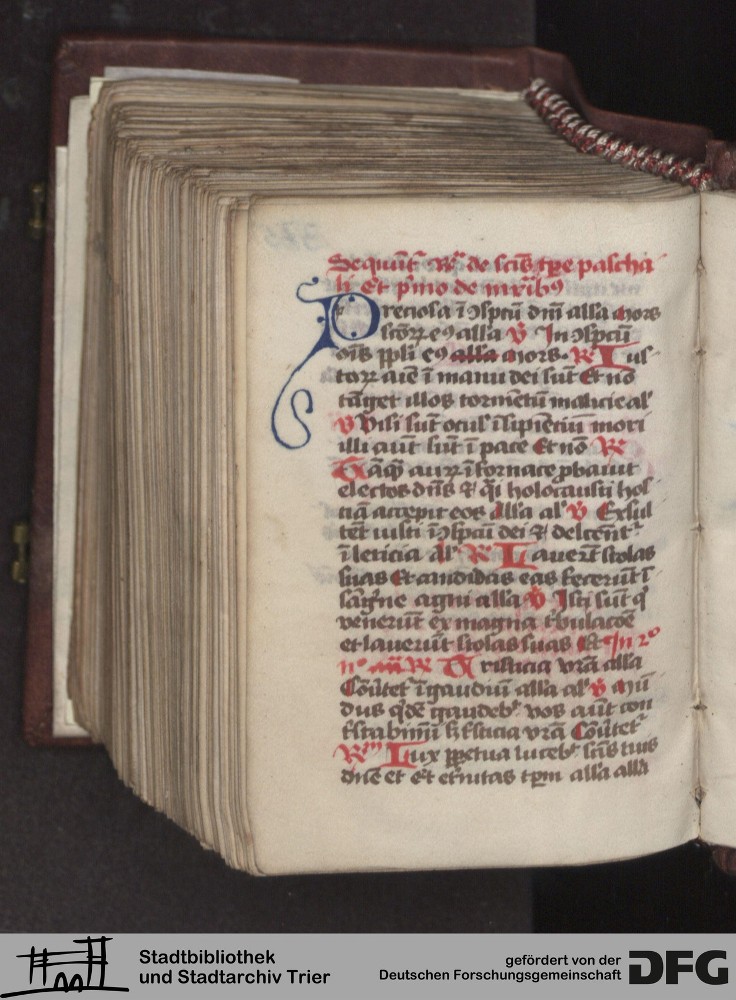 Sequūt᷑ R̄ de scīs tp̄e pascha
li Et p̄mo de mr̄ibꝯ
Preciosa ī ꝯspcū dnī alla mors
scōꝝ eꝯ alla v̄ In ꝯspcū
oīs ppli eꝯ alla mors. R̄ Ius
toꝝ aīe ī manu dei sūt Et nō
tāget illos tormētū malicie al'
v̄ Visi sūt ocul' īsipiētiū mori
illi aūt sūt ī pace Et nō R̄
Tāqꝫ auꝝ ī fornace ꝓbauit
electos dn̄s ⁊ q̄si holocausti hos
tiā accepit eos Alla al' v̄ Exul
tēt iusti ī ꝯspcū dei ⁊ delcent᷑
ī leticia Al' R̄ Lauerūt stolas
suas Et candidas eas fecerūt ī
sāgīne agni alla v̄ Isti sūt q'
venerūt ex magna t'bulacōe
et lauerūt stolas suas Et In
R̄ Tristicia vrā alla
Cōūtet᷑ ī gaudiū alla al' v̄ Mū
dus q'dē gaudebꝫ vos aūt con
t'stabimī sꝫ t'sticia vrā Cōūtet᷑
R̄m Lux ꝑpetua lucebꝫ scīs tuis
dn̄e et Et et'nitas tp̄m alla alla
Stadtbibliothek
und Stadtarchiv Trier
gefördert von der
Deutschen Forschungsgemeinschaft
DFG